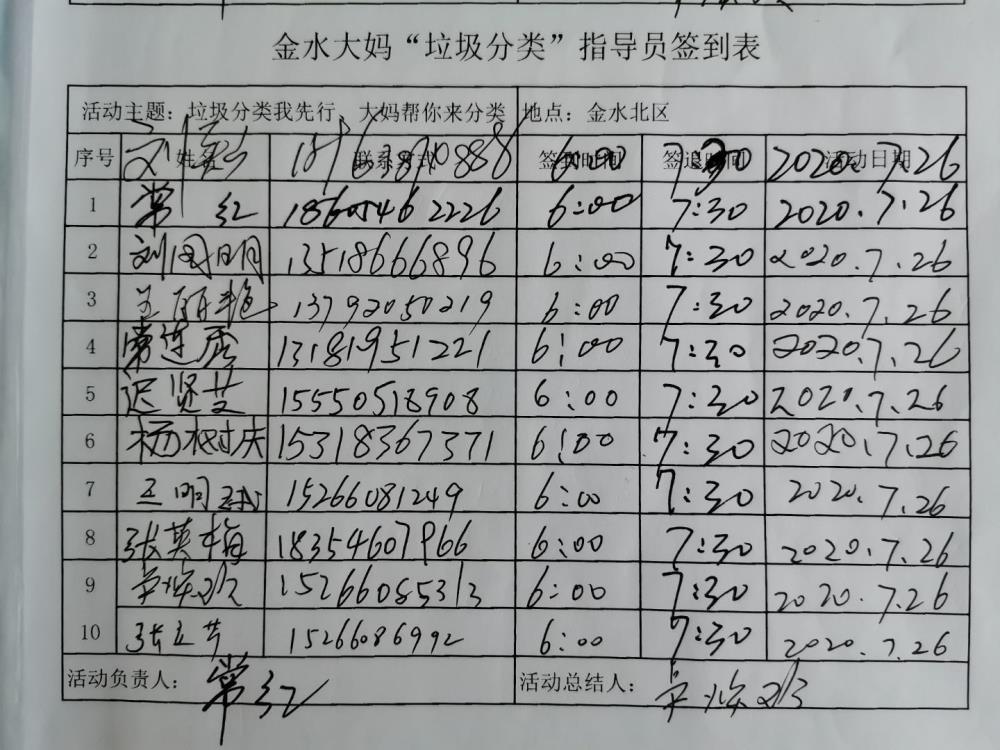 金水大妈“垃圾分类”指导员签到表
活动主题：垃圾分类我先行，大妈帮你来分类 地点：金水北区
序号 姓名 联系方式 签到时间 签退时间 活动日期
6:00 7:30 2020.7.26
1 常红 18605462226 6:00 7:30 2020.7.26
2 刘国明 13518666896 6:00 7:30 2020.7.26
3 王丽艳 13792050219 6:00 7:30 2020.7.26
4 常连香 13181951221 6:00 7:30 2020.7.26
5 迟贤芝 15550518908 6:00 7:30 2020.7.26
6 杨树庆 15318367371 6:00 7:30 2020.7.26
7 王明 15266081249 6:00 7:30 2020.7.26
8 张英梅 18354607966 6:00 7:30 2020.7.26
9 15266085313 6:00 7:30 2020.7.26
10 张立芳 15266086992 6:00 7:30 2020.7.26
活动负责人：常红 活动总结人：